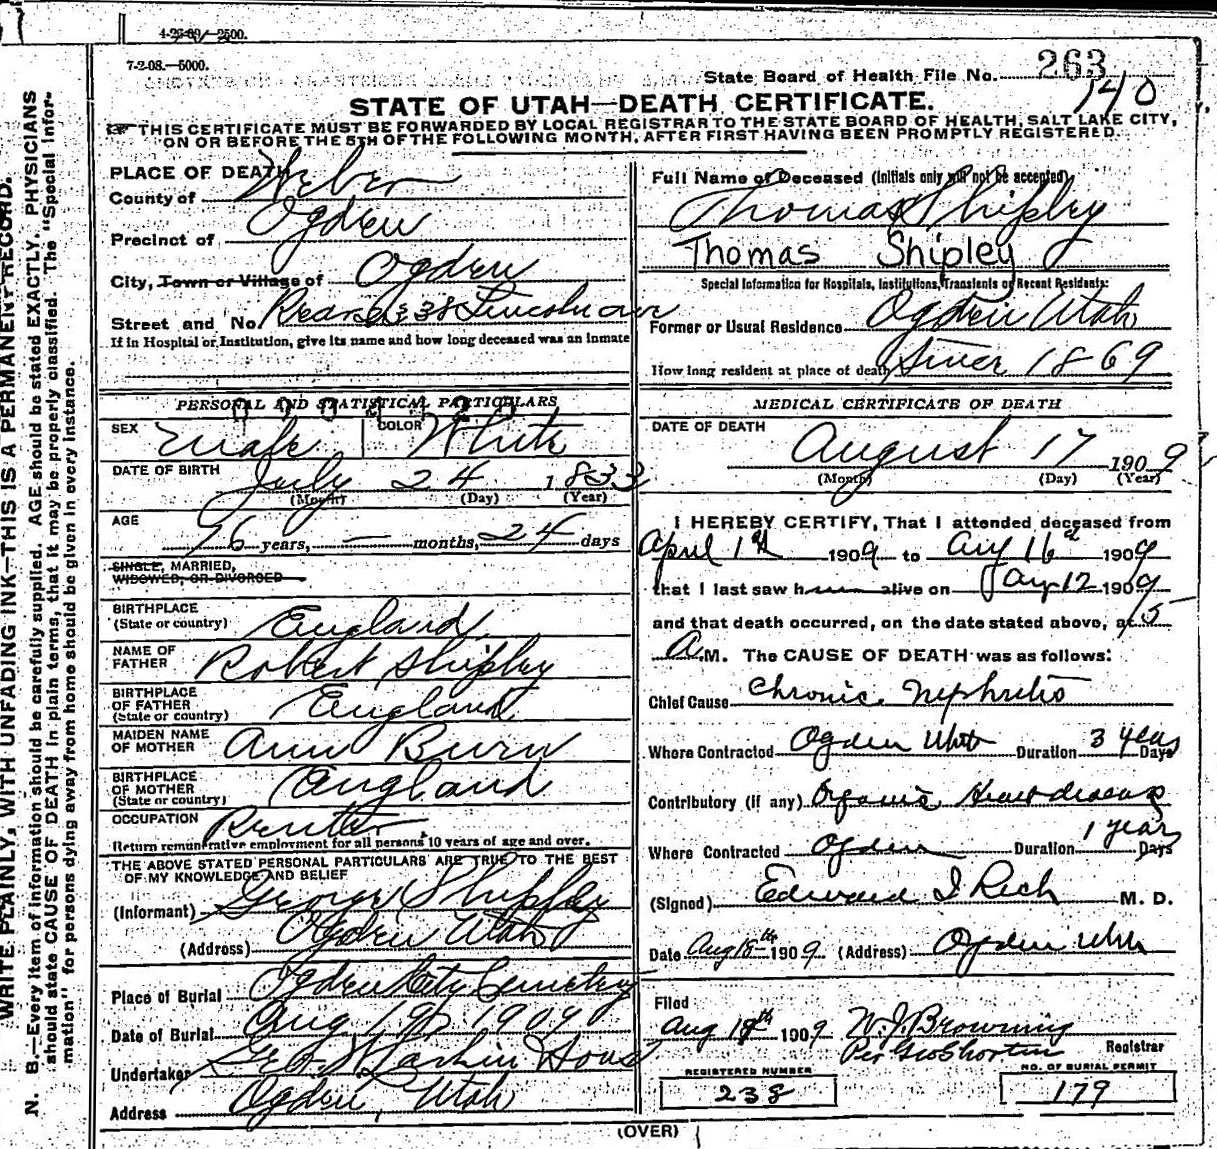 4-26-09/-2500.
7-2-08.—5000.
State Board of Health File No. 263
140
STATE OF UTAH—DEATH CERTIFICATE.
☞ THIS CERTIFICATE MUST BE FORWARDED BY LOCAL REGISTRAR TO THE STATE BOARD OF HEALTH, SALT LAKE CITY,
ON OR BEFORE THE 5TH OF THE FOLLOWING MONTH, AFTER FIRST HAVING BEEN PROMPTLY REGISTERED.
WRITE PLAINLY, WITH UNFADING INK—THIS IS A PERMANENT RECORD.
N. B.—Every item of information should be carefully supplied. AGE should be stated EXACTLY. PHYSICIANS
should state CAUSE OF DEATH in plain terms, that it may be properly classified. The "Special Infor-
mation" for persons dying away from home should be given in every instance.
PLACE OF DEATH
County of Weber
Precinct of Ogden
City, Town or Village of Ogden
Street and No. Rear 2338 Lincoln ave
If in Hospital or Institution, give its name and how long deceased was an inmate
PERSONAL AND STATISTICAL PARTICULARS
SEX Male COLOR White
DATE OF BIRTH July 24 1833
(Month) (Day) (Year)
AGE
76 years, — months, 24 days
SINGLE, MARRIED,
WIDOWED, OR DIVORCED
BIRTHPLACE
(State or country) England
NAME OF
FATHER Robert Shipley
BIRTHPLACE
OF FATHER
(State or country) England
MAIDEN NAME
OF MOTHER Ann Burn
BIRTHPLACE
OF MOTHER
(State or country) England
OCCUPATION Renter
Return remunerative employment for all persons 10 years of age and over.
THE ABOVE STATED PERSONAL PARTICULARS ARE TRUE TO THE BEST
OF MY KNOWLEDGE AND BELIEF
(Informant) George Shipley
(Address) Ogden Utah
Place of Burial Ogden City Cemetery
Date of Burial Aug 19th 1909
Undertaker Geo W Larkin & Sons
Address Ogden, Utah
Full Name of Deceased (Initials only will not be accepted)
Thomas Shipley
Thomas Shipley
Special Information for Hospitals, Institutions, Transients or Recent Residents:
Former or Usual Residence Ogden Utah
How long resident at place of death Since 1869
MEDICAL CERTIFICATE OF DEATH
DATE OF DEATH
August 17 1909
(Month) (Day) (Year)
I HEREBY CERTIFY, That I attended deceased from
April 1st 1909 to Aug 16th 1909
that I last saw him alive on Aug 12 1909
and that death occurred, on the date stated above, at 5
A M. The CAUSE OF DEATH was as follows:
Chief Cause Chronic Nephritis
Where Contracted Ogden Utah Duration 3 years Days
Contributory (if any) Organic Heart disease
Where Contracted Ogden Duration 1 year Days
(Signed) Edward I Rich M. D.
Date Aug 18th 1909 (Address) Ogden Utah
Filed
Aug 18th 1909 W. J. Browning
Per Geo Shorten Registrar
REGISTERED NUMBER
238
NO. OF BURIAL PERMIT
179
(OVER)